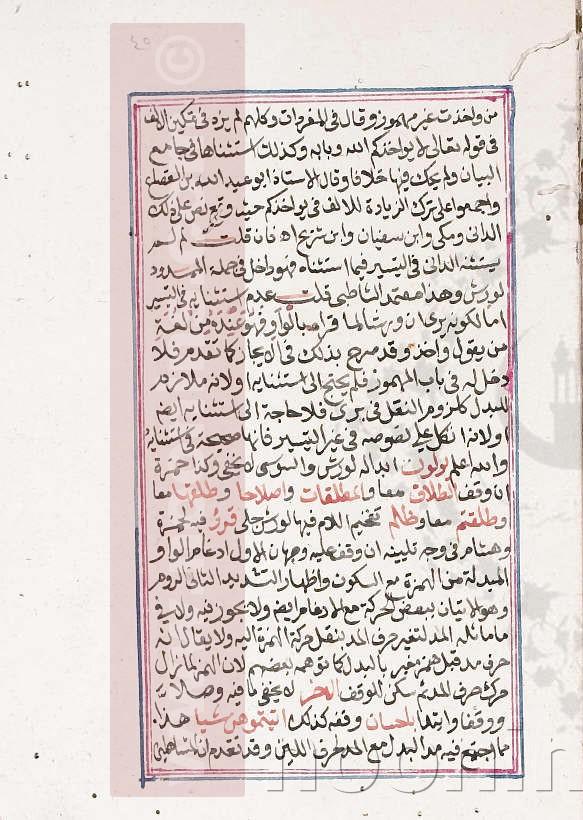 ٤٥
من واخذت غير مهموز وقال في المفردات وكلهم لم يزد في تمكين الالف
في قوله تعالى لا يواخذكم الله وبابه وكذلك استثناها في جامع
البيان ولم يحك فيها خلافا وقال الاستاذ ابو عبد الله بن القصاع
واجمعوا على ترك الزيادة للالف في يواخذكم حيث وقع نص على ذلك
الداني ومكي وابن سفيان وابن شريح اه فان قلت لم لم
يستثنه الداني في التيسير فيما استثناه فهو داخل في جملة الممدود
لورش وهذا معتمد الشاطبي قلت عدم استثنايه في التيسير
اما لكونه يرى ان ورشا لما قراه بالواو فهو عنده من لغة
من يقول واخذ وقد صرح بذلك في الايجاز كما تقدم فلا
دخل له في باب المهموز فلم يحتج الى استثنايه او لانه ملازم
للبدل كلزوم النقل في يرى فلا حاجة الى استثنايه ايضا
او لانه اتكل على نصوصه في غير التيسير فانها صريحة في استثنايه
والله اعلم يولون ابداله لورش والسوسي لا يخفى وكذا حمزة
ان وقف الطلاق معا والمطلقات واصلاحا وطلقها معا
وطلقتم معا وظلم تفخيم اللام فيها لورش جلي قروء فيه لحمزة
وهشام في وجه تليينه ان وقف عليه وجهان الاول ادغام الواو
المبدلة من الهمزة مع السكون واظهار التشديد الثاني الروم
وهو الاتيان ببعض الحركة مع الادغام ايضا ولا يجوز فيه ولا في
ما ماثله المد لتغير حرف المد بنقل حركة الهمزة اليه ولا يقال انه
حرف مد قبل همز مغير بالبدل كما توهمه بعضهم لان الهمز لما زال
حرك حرف المد ثم سكن للوقف الاخر لا يخفى ما فيه وصلا
ووقفا وابتدا باحسان وقفه كذلك اتيتموهن شيا هذا
ما اجتمع فيه مد البدل مع المد لحرف اللين وقد تقدم ان للشاطبي
noorlin